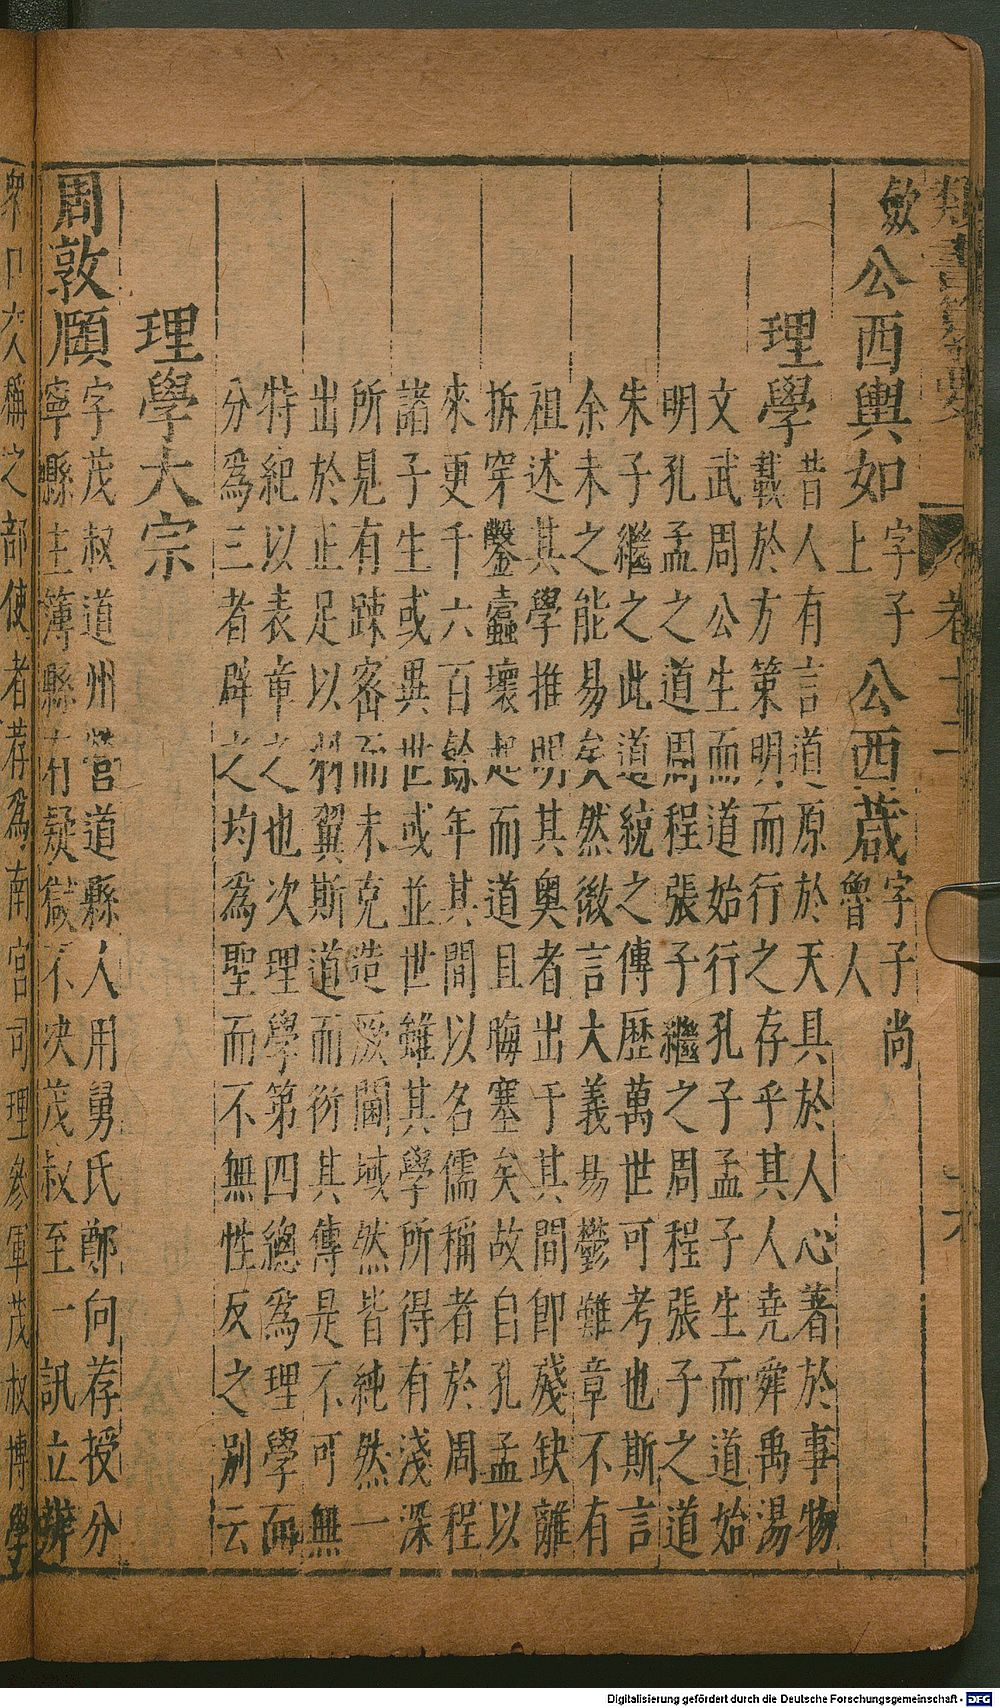 歛公西輿如字子上公西蒧字子尚魯人
理學
昔人有言道原於天具於人心著於事物
載於方策明而行之存乎其人堯舜禹湯
文武周公生而道始行孔子孟子生而道始
明孔孟之道周程張子繼之周程張子之道
朱子繼之此道統之傳歷萬世可考也斯言
余未之能易矣然微言大義昜鬱雖章不有
祖述其學推明其奥者出于其間即殘缺離
拆穿鑿蠹壞起而道且晦塞矣故自孔孟以
來更千六百餘年其間以名儒稱者於周程
諸子生或異世或並世雖其學所得有淺深
所見有踈宻而未克造厥閫域然皆純然一
出於正足以羽翼斯道而衍其傳是不可無
特紀以表章之也次理學第四總爲理學而
分爲三者辟之均爲聖而不無性反之别云
理學大宗
周敦頤
字茂叔道州營道縣人用舅氏鄭向荐授分
寧縣主簿縣有疑獄不决茂叔至一訊立辨
衆口交稱之部使者荐爲南宫司理參軍茂叔博學
Digitalisierung gefördert durch die Deutsche Forschungsgemeinschaft - DFG